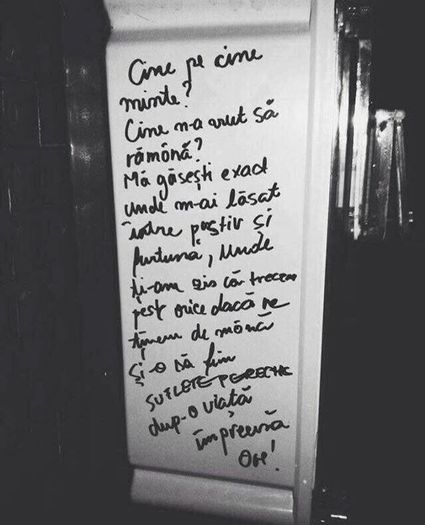 Cine pe cine
minte?
Cine n-a vrut să
rămână?
Mă găsești exact
unde m-ai lăsat
între pustiu și
furtună, Unde
ți-am zis că trecem
pest orice dacă ne
ținem de mână
și-o să fim
SUFLETE PERECHE
dup-o viață
împreună
OH!